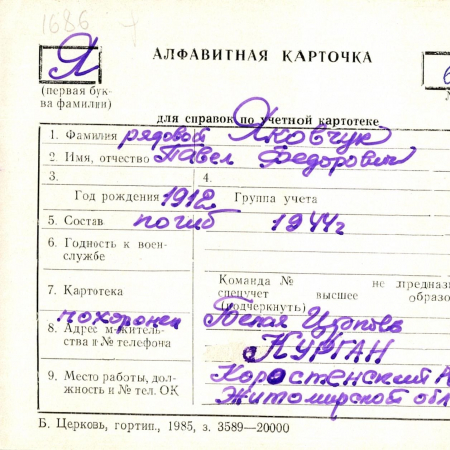 1686 +
Я
АЛФАВИТНАЯ КАРТОЧКА
(первая бук-
ва фамилии)
для справок по учетной картотеке
1. Фамилия рядовой Яковчук
2. Имя, отчество Павел Федорович
3. 4.
Год рождения 1912 Группа учета
5. Состав погиб 1944г
6. Годность к воен-
службе
Команда №
не предназ
7. Картотека спецучет высшее образо
(подчеркнуть)
похоронен Белая
8. Адрес м-житель-
ства и № телефона КУРГАН
9. Место работы, дол-
жность и № тел. ОК Коростенский
Житомирской обл
Б. Церковь, гортип., 1985, з. 3589—20000